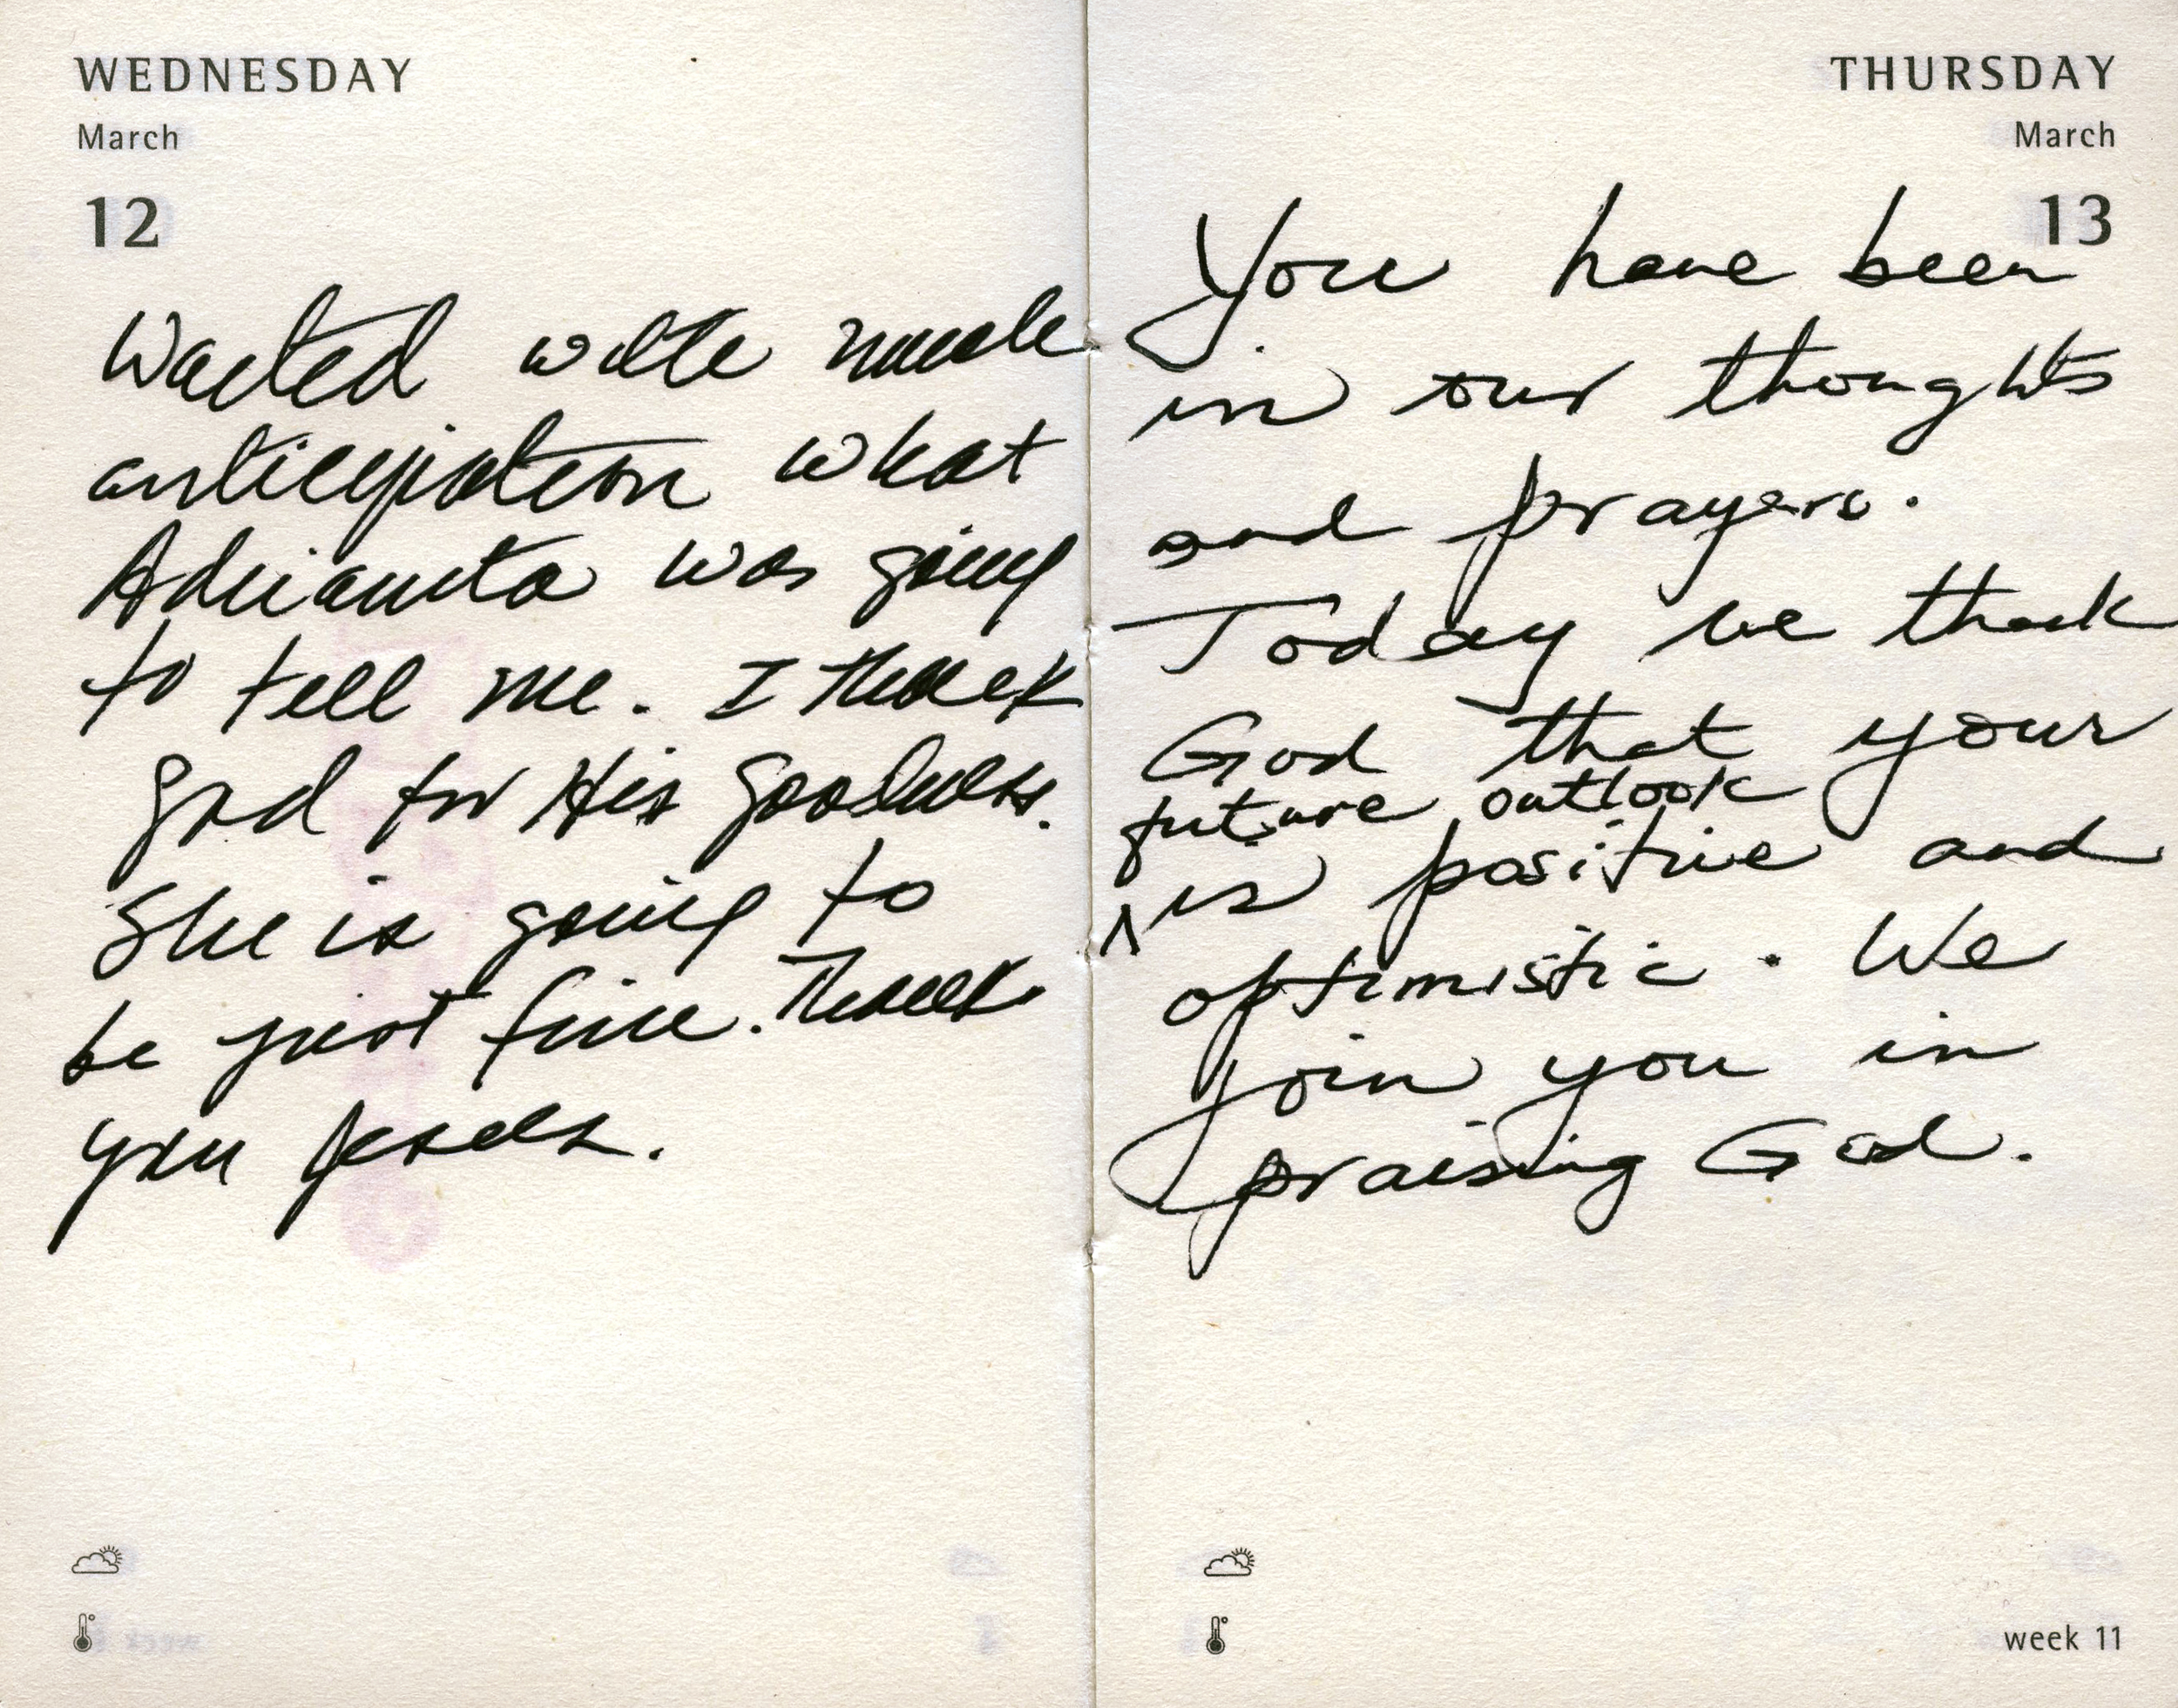 WEDNESDAY
March
12
Waited with much
anticipation what
Adrianita was going
to tell me. I thank
god for His goodness.
She is going to
be just fine. Thank
you Jesus.
THURSDAY
March
13
You have been
in our thoughts
and prayers.
Today we thank
God that your
future outlook
is positive and
optimistic. We
join you in
praising God.
week 11